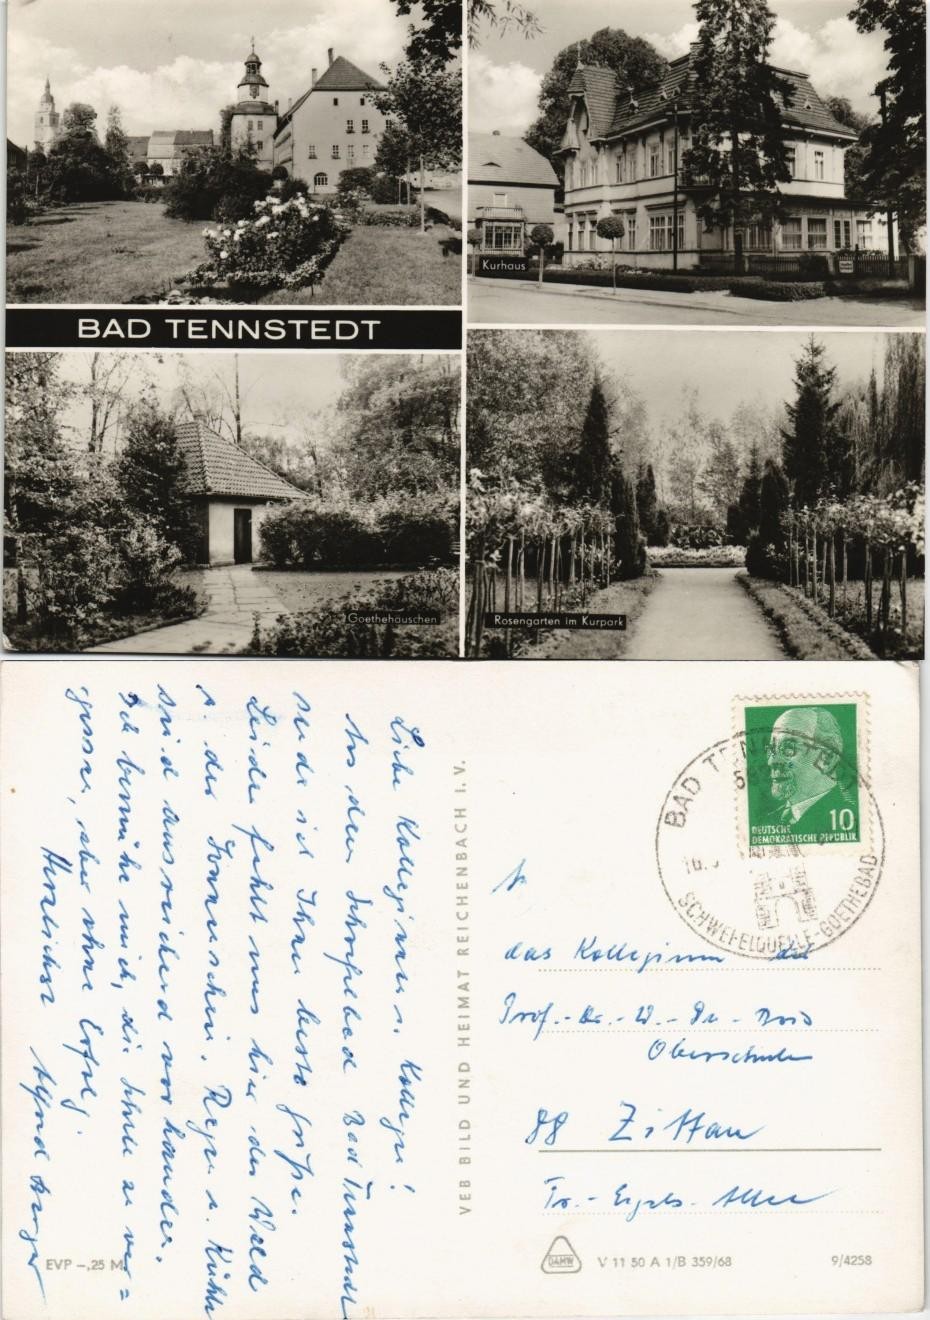 Kurhaus
BAD TENNSTEDT
Goethehäuschen
Rosengarten im Kurpark
Liebe Kolleginnen u. Kollegen!
Aus dem Schwefelbad Bad Tennstedt
sende ich Ihnen beste Grüße.
Leider fehlt uns hier der Wald
u. der Sonnenschein. Regen u. Kühle
sind ausreichend vorhanden.
Ich bemühe mich, die Schule zu ver=
gessen, aber ohne Erfolg.
Herzlichst
VEB BILD UND HEIMAT REICHENBACH I. V.
BAD TENNSTEDT
SCHWEFELQUELLE-GOETHEBAD
10
DEUTSCHE
DEMOKRATISCHE REPUBLIK
An
das Kollegium der
Prof.-Dr.-W.-Du-Bois
Oberschule
88 Zittau
Fr.-Engels-Allee
EVP -,25 M
DAMW
V 11 50 A 1/B 359/68
9/4258